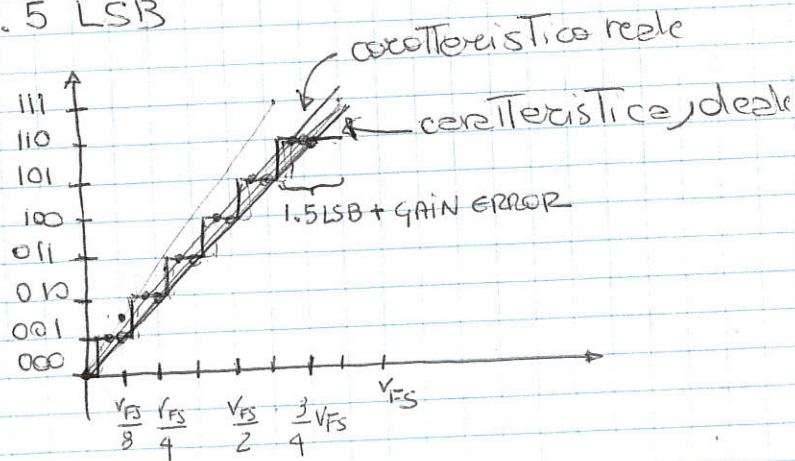 .5 LSB
caratteristica reale
caratteristica ideale
111
110
101
100
011
010
001
000
1.5 LSB + GAIN ERROR
VFS/8
VFS/4
VFS/2
3/4 VFS
VFS